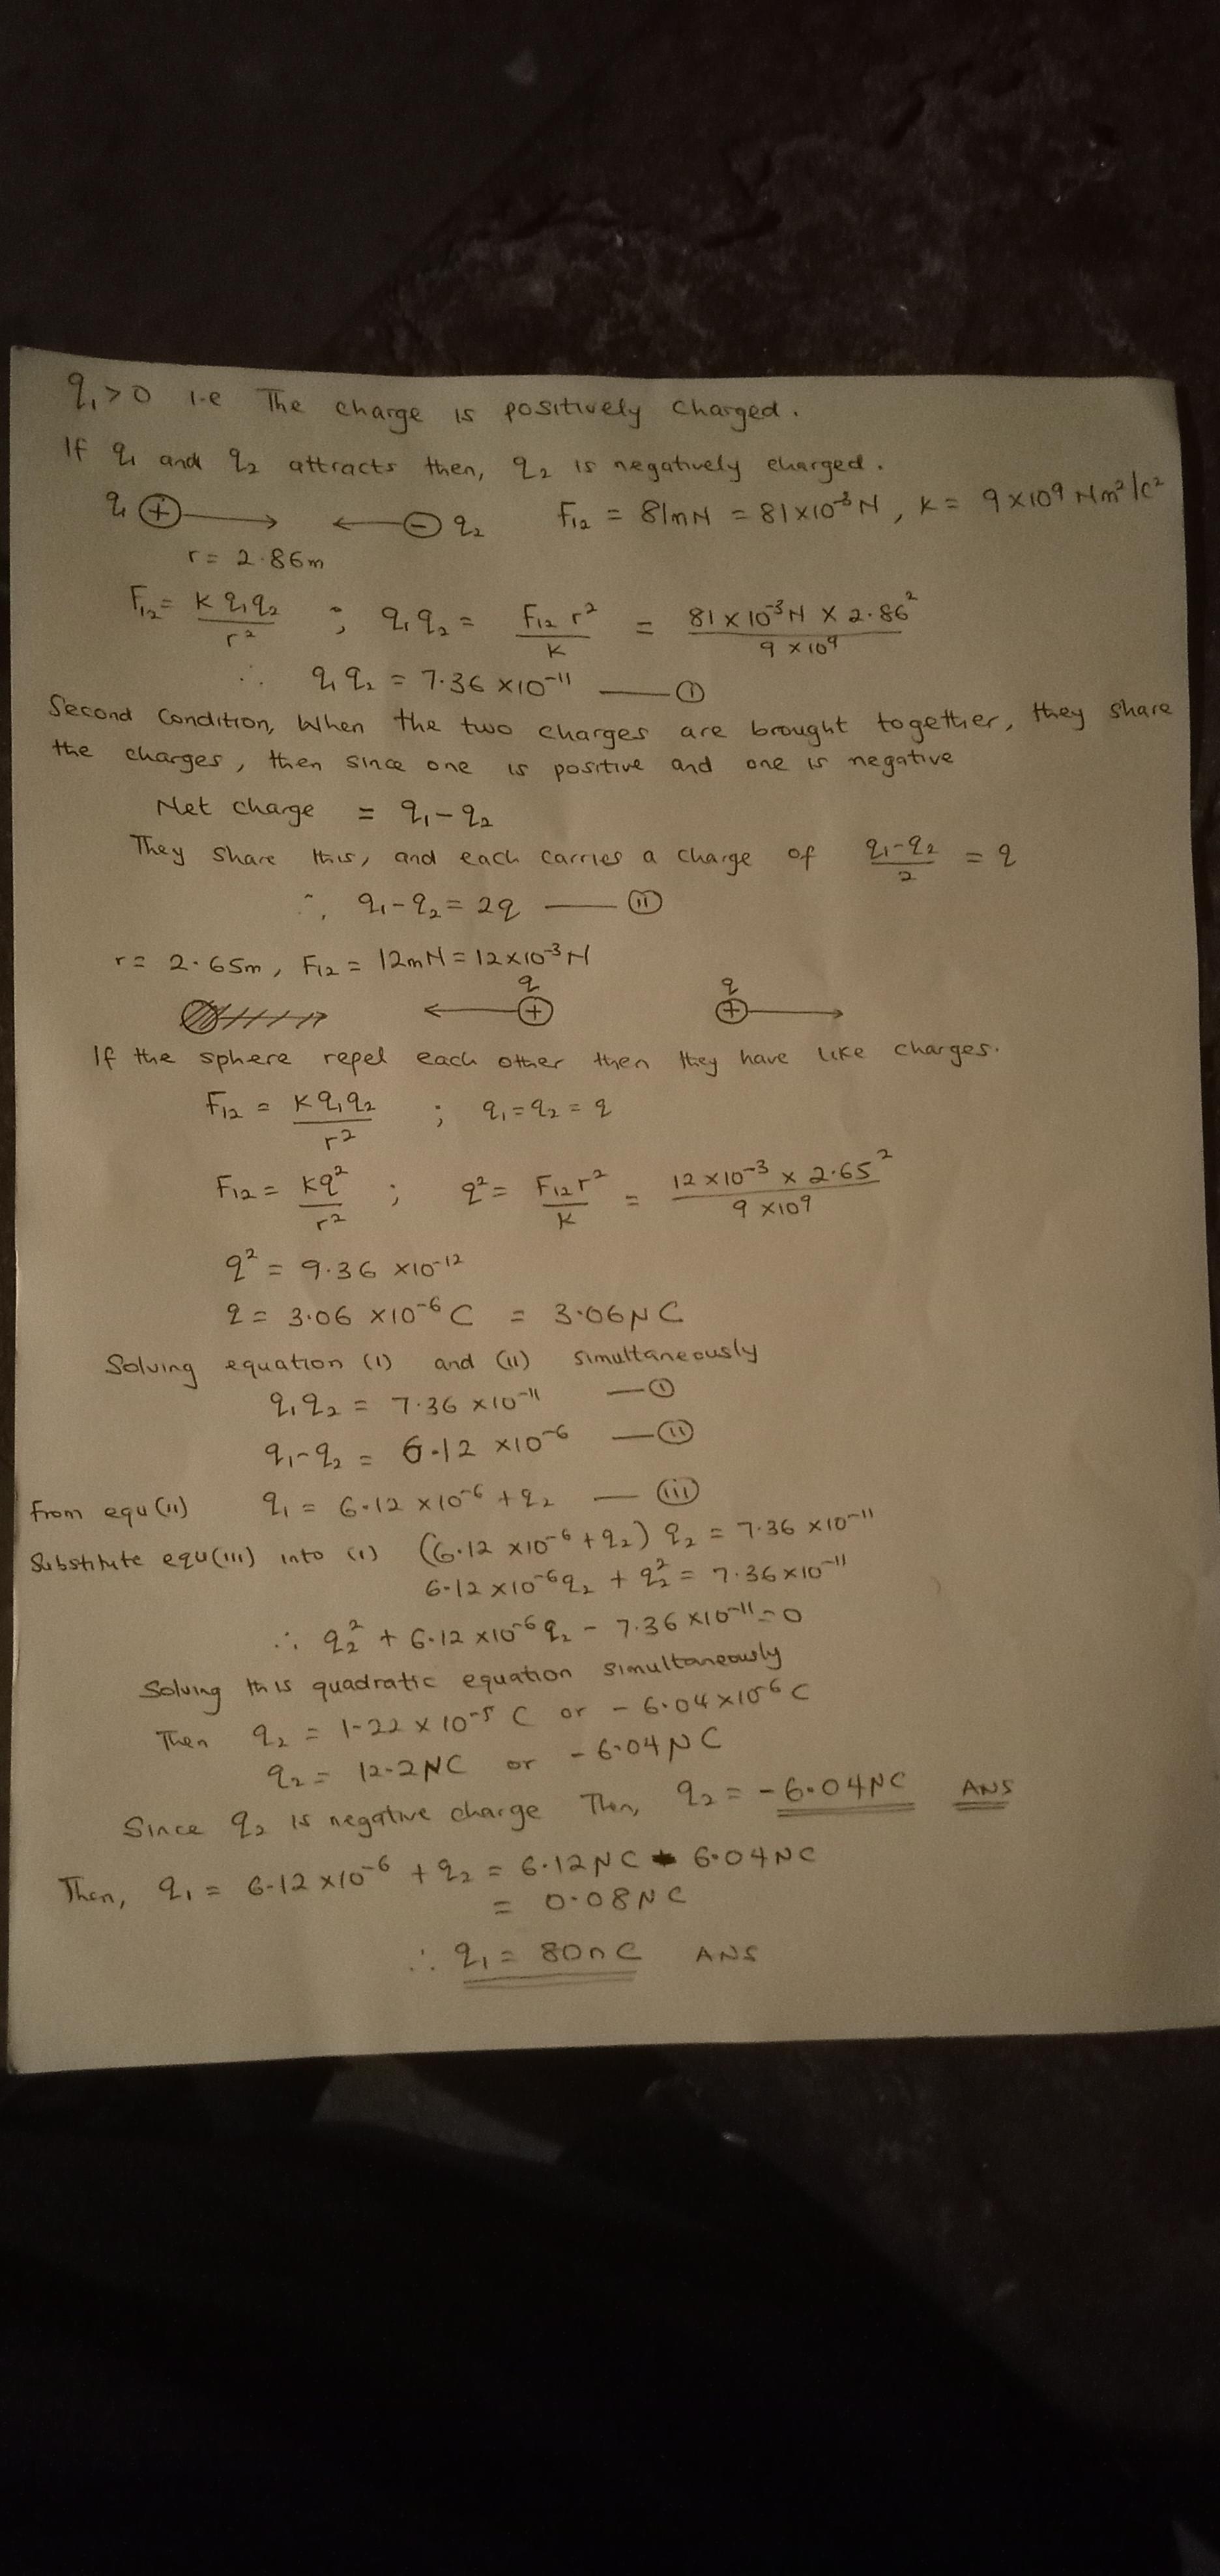 q₁>0 i.e The charge is positively charged.
If q₁ and q₂ attracts then, q₂ is negatively charged.
q₁ + - q₂ F₁₂ = 81mN = 81×10⁻³N, K = 9×10⁹ Nm²/C²
r = 2.86m
F₁₂ = K q₁q₂ / r² ; q₁q₂ = F₁₂ r² / K = 81×10⁻³N × 2.86² / 9×10⁹
∴ q₁q₂ = 7.36×10⁻¹¹ — (I)
Second Condition, When the two charges are brought together, they share
the charges, then since one is positive and one is negative
Net charge = q₁-q₂
They share this, and each carries a charge of q₁-q₂ / 2 = q
∴ q₁-q₂ = 2q — (II)
r = 2.65m, F₁₂ = 12mN = 12×10⁻³N
q q
+ +
If the sphere repel each other then they have like charges.
F₁₂ = Kq₁q₂ / r² ; q₁=q₂=q
F₁₂ = Kq² / r² ; q² = F₁₂r² / K = 12×10⁻³ × 2.65² / 9×10⁹
q² = 9.36×10⁻¹²
q = 3.06×10⁻⁶C = 3.06μC
Solving equation (I) and (II) simultaneously
q₁q₂ = 7.36×10⁻¹¹ — (I)
q₁-q₂ = 6.12×10⁻⁶ — (II)
From equ(II) q₁ = 6.12×10⁻⁶+q₂ — (III)
Substitute equ(III) into (I) (6.12×10⁻⁶+q₂) q₂ = 7.36×10⁻¹¹
6.12×10⁻⁶q₂ + q₂² = 7.36×10⁻¹¹
∴ q₂² + 6.12×10⁻⁶q₂ - 7.36×10⁻¹¹=0
Solving this quadratic equation simultaneously
Then q₂ = 1.22×10⁻⁵ C or -6.04×10⁻⁶C
q₂ = 12.2μC or -6.04μC
Since q₂ is negative charge Then, q₂ = -6.04μC ANS
Then, q₁ = 6.12×10⁻⁶ + q₂ = 6.12μC - 6.04μC
= 0.08μC
∴ q₁ = 80nC ANS